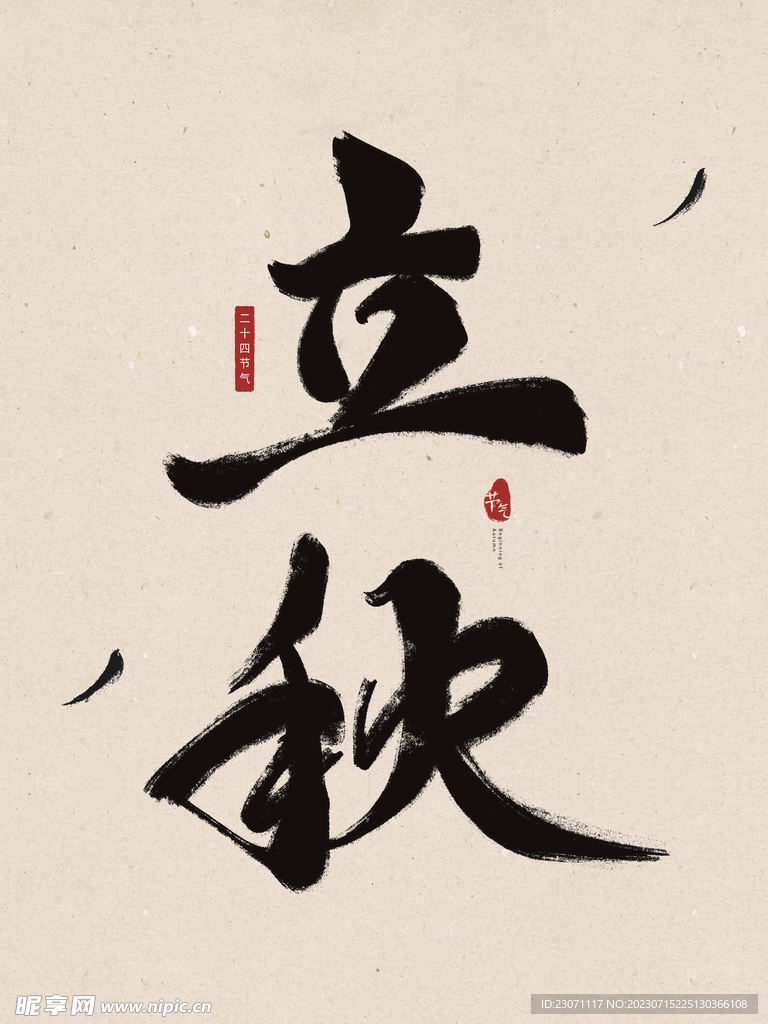 立秋
二十四节气
节气
Beginning of
Autumn
昵享网 www.nipic.cn
ID:23071117 NO:20230715225130366108